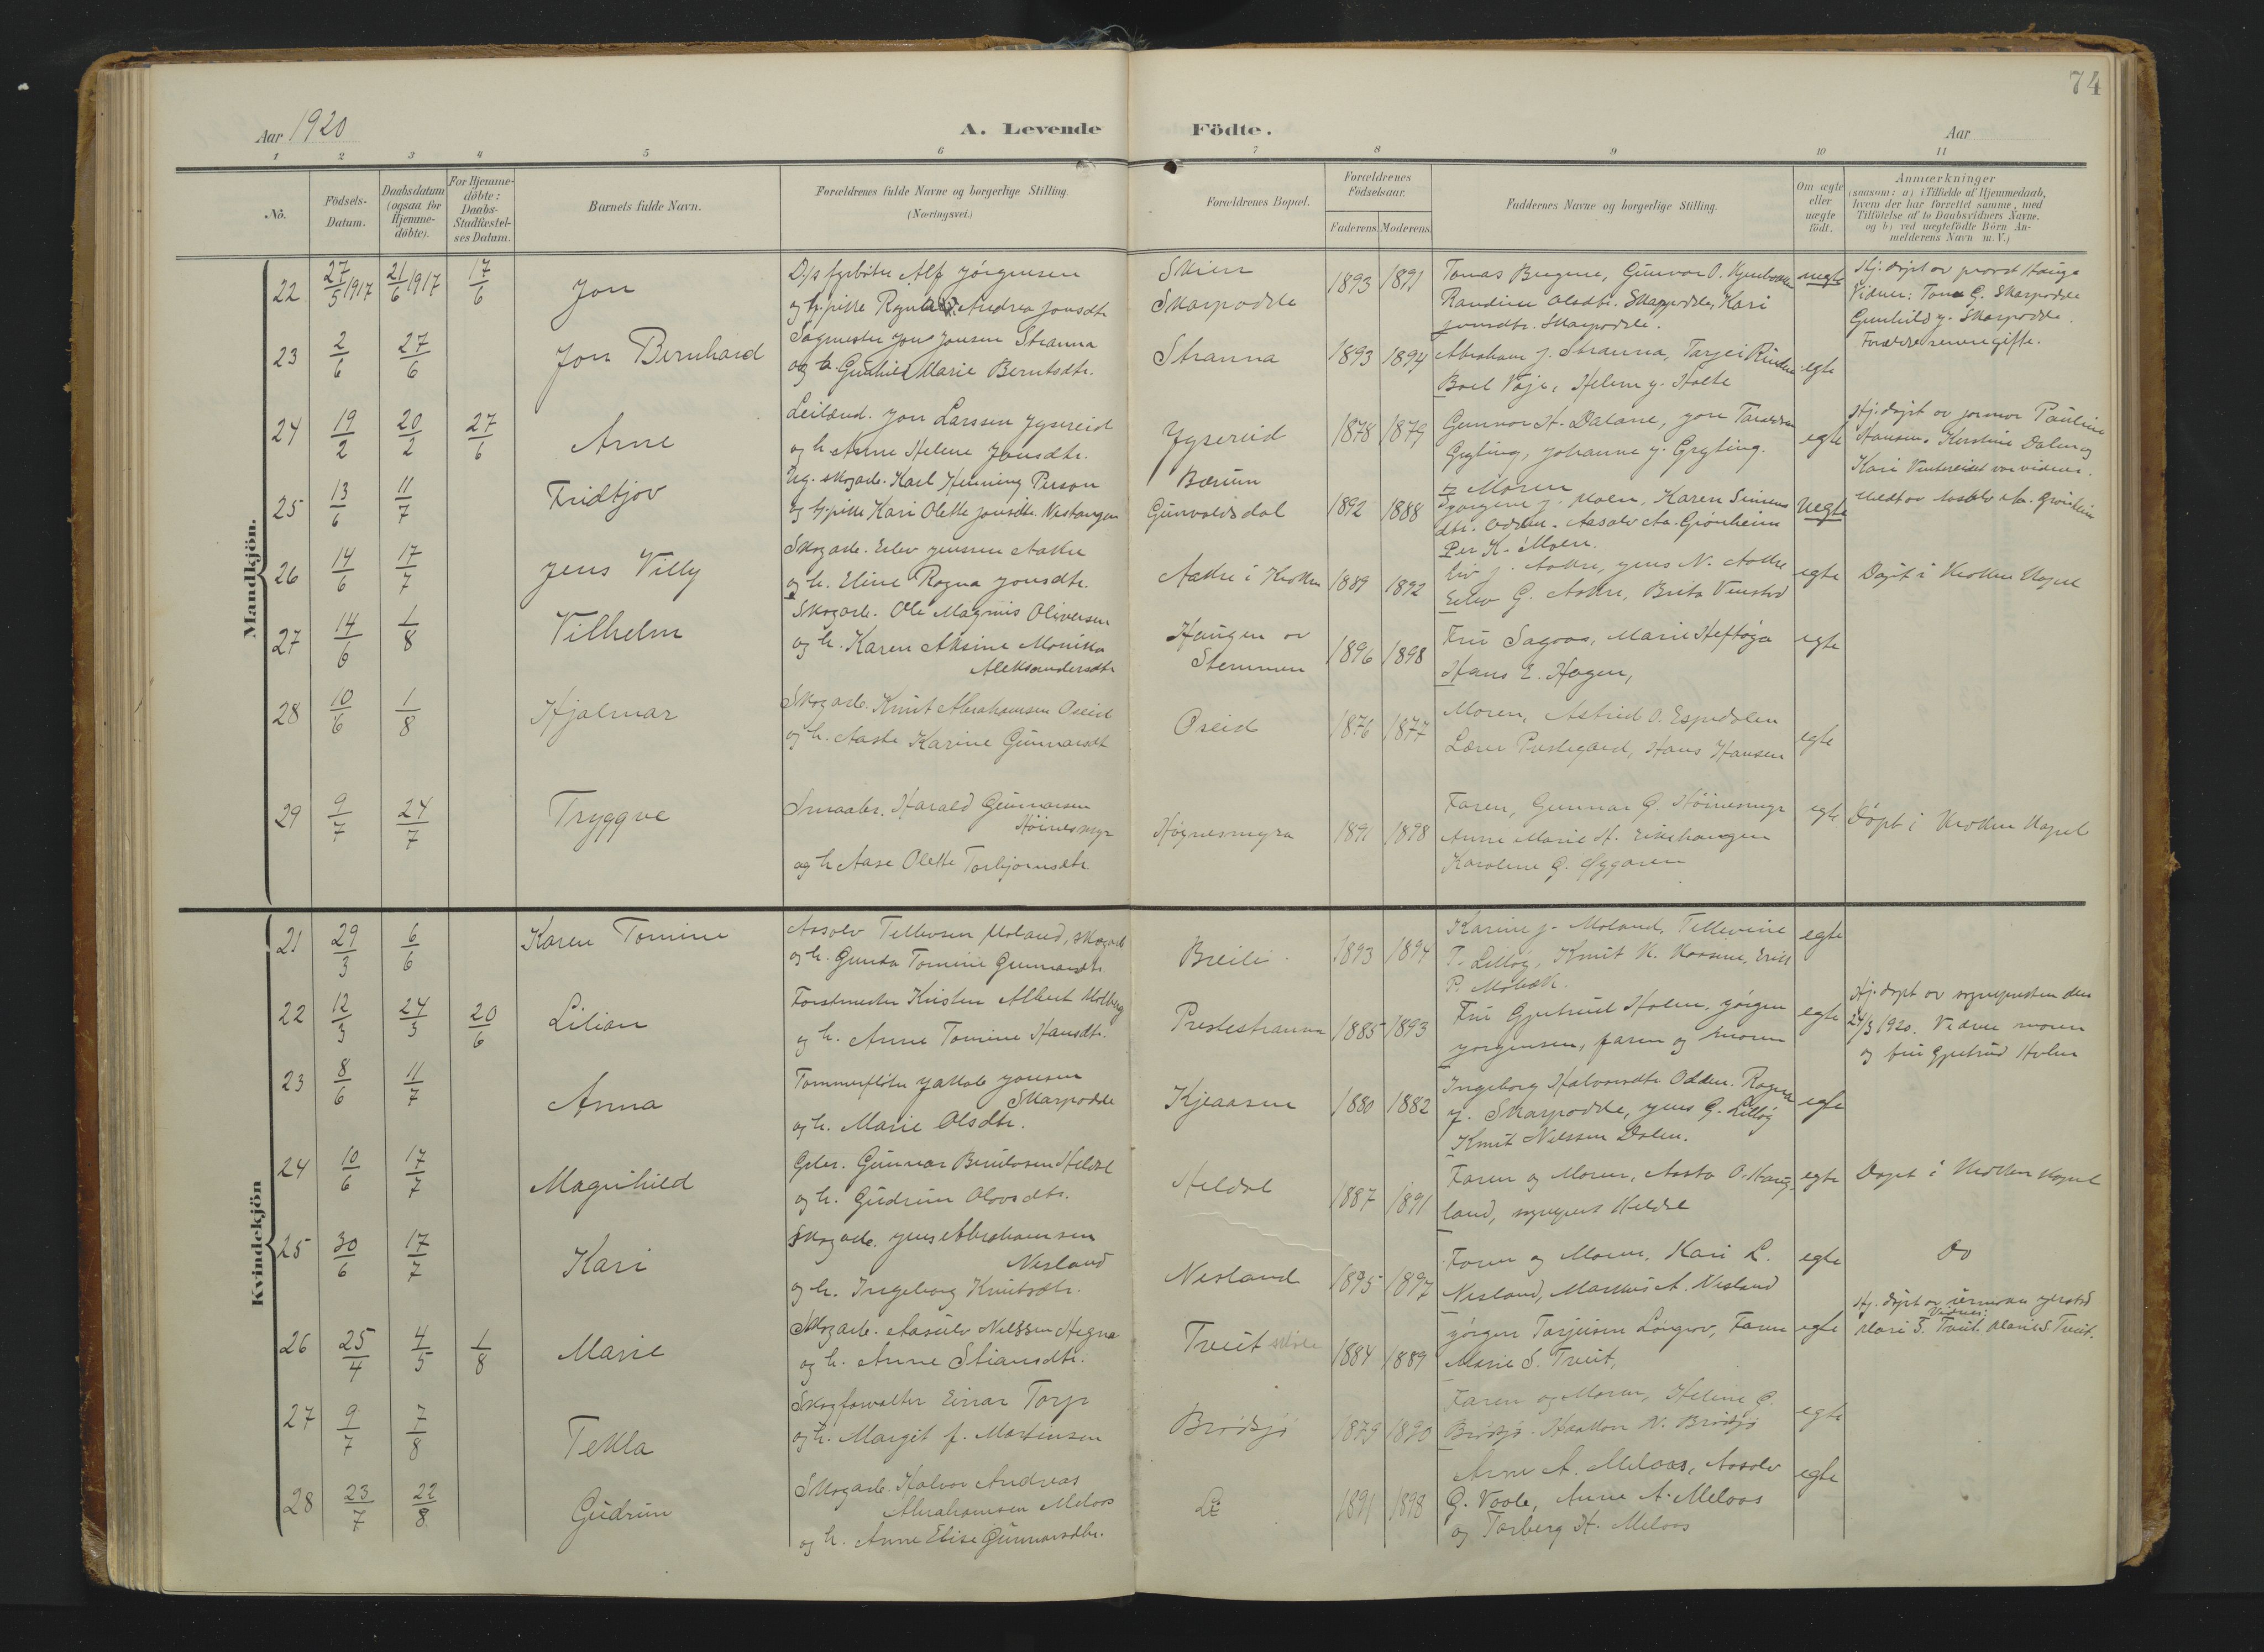 74
Aar 1920
A. Levende Födte.
Aar
1 2 3 4 5 6 7 8 9 10 11
No.
Födsels-Datum.
Daabsdatum (ogsaa for Hjemme-döbte).
For Hjemme-döbte: Daabs-Stadfæstel-ses Datum.
Barnets fulde Navn.
Forældrenes fulde Navne og borgerlige Stilling.
(Næringsvei.)
Forældrenes Bopæl.
Forældrenes Födselsaar.
Faderens. Moderens.
Faddernes Navne og borgerlige Stilling.
Om ægte eller uægte födt.
Anmærkninger
(saasom: a) i Tilfælde af Hjemmedaab,
hvem der har forrettet samme, med
Tilföielse af to Daabsvidners Navne.
og b) ved uægtefödte Börn An-
melderens Navn m. V.)
Mandkjön.
22 27/5 1917 21/6 1917 17/6 Jon
D/s fyrbøter Alf Jörgensen
og pike Ragna Andrea Jonsdtr
Skien
Skarpodde
1893 1891
Tomas Bergene, Gunvor O.
Randine Olsdtr. Skarpodde, Kari
Jonsdtr. Skarpodde.
uegte
Hj. døpt av prost Hauge
Vidner: Tone G. Skarpodde
Gunhild J. Skarpodde.
Forældre senere gifte.
23 2/6 27/6 Jon Bernhard
Sagmester Jon Jonsen Stranna
og h. Gunhild Marie Berntsdtr.
Stranna
1893 1894
Abraham J. Stranna, Tarjei
Boel Voje, Helene J. Holte
egte
24 19/2 20/2 27/6 Arne
Leilænd. Jon Larssen Jysereid
og h Anne Helene Jonsdtr.
Jysereid
1878 1879
Gunnar H. Dalane, Jon
Gryting, Johanne J. Gryting.
egte
Hj. døpt av jormor Pauline
Hansen. Kirstine Dalen og
Kari var vidner.
25 13/6 11/7 Fridtjov
Ug. skogarb. Karl Henning Person
og pike Kari Olette Jonsdtr.
Bærum
Gunvaldsdal
1892 1888
Moren
J. Moen, Karen Simens
dtr. Odden. Aasolv Aa. Grönheim
Per K. Moen.
Uegte
Meldt av Aasolv Aa. Grönheim
26 14/6 17/7 Jens Villy
Skogarb. Eilev Jensen Aakre
og h. Eline Ragna Jonsdtr.
Aakre i Kroken
1889 1892
J. Aakre, Jens N. Aakre
Eilev G. Aakre, Brita
egte
Døpt i Kroken Kapel
27 14/6 1/8 Vilhelm
Skogarb. Ole Magnus Oliversen
og h. Karen Aksine Monika
Aleksandersdtr
Haugen av
Stemmen
1896 1898
Fru Sagaas, Marie Heftøya
Hans E. Hagen,
egte
28 10/6 1/8 Hjalmar
Skogarb. Knut Abrahamsen Oseid
og h. Aaste Karine Gunnarsdt
Oseid
1876 1877
Moren, Astrid O. Espedalen
Lærer Prestegaard, Hans Hansen
egte
29 9/7 24/7 Tryggve
Smaabr. Harald Gunnarsen
Höinesmyr
og h Aase Olette Torbjornsdtr
Høgnesmyra
1891 1898
Faren, Gunnar G. Höinesmyr
Anne Marie H. Eikehaugen
Karoline G.
egte
Döpt i Kroken Kapel
Kvindekjön
21 29/3 6/6 Karen Tomine
Aasolv Tellevsen Moland, skogarb
og h. Gunda Tomine Gunnarsdtr.
Breili
1893 1894
Karine J. Moland, Tellevine
T. Lilløy, Knut K.
P. Mobæk.
egte
22 12/3 24/3 20/6 Lilian
Forstmester Kristen Albert
og h. Anne Tomine Hansdtr.
Prestestranna
1885 1893
Fru Gjertrud Holen, Jörgen
Jørgensen, faren og moren
egte
Hj. døpt av sognepresten den
24/3 1920. Vidner moren
og fru Gjertrud Holen
23 8/6 11/7 Anna
Tømmerfløter Jakob Jonsen
Skarpodde
og h. Marie Olsdtr.
Kjeaasen
1880 1882
Ingeborg Halvorsdtr Odden. Ragna
J. Skarpodde, Jens G. Lilløy
Knut Nilssen Dalen.
egte
24 10/6 17/7 Magnhild
Gbr. Gunnar Heldal
og h. Gudrun Olavsdtr.
Heldal
1887 1891
Faren og Moren, Aasta O.
land, Heldal
egte
Døpt i Kroken Kapel
25 30/6 17/7 Kari
Skogarb. Jens Abrahamsen
Nesland
og h. Ingeborg Knutsdtr.
Nesland
1895 1897
Faren og Moren, Kari L.
Nesland, Markus A. Nesland
egte
Do
26 25/4 4/5 1/8 Marie
Skogarb. Aasulv Nilssen Hegna
og h. Anne Stiansdtr.
Treit
1884 1889
Jörgen Tarjeisen Longvo, Faren
Marie S. Treit,
egte
Hj. døpt av
Vidner:
Mari S. Treit. Marie S Treit.
27 9/7 7/8 Tekla
Skogforvalter Einar Torp
og h. Margit f. Martinsen
Brödsjö
1879 1890
Faren og Moren, Helene G.
Brödsjö. Haakon N. Brödsjö
egte
28 23/7 22/8 Gudrun
Skogarb. Halvor Andreas
Abrahamsen Melaas
og h. Anne Elise Gunnarsdtr.
1891 1898
Anne A. Melaas, Aasolv
G. Voole, Anne A. Melaas
og Torberg H. Melaas
egte